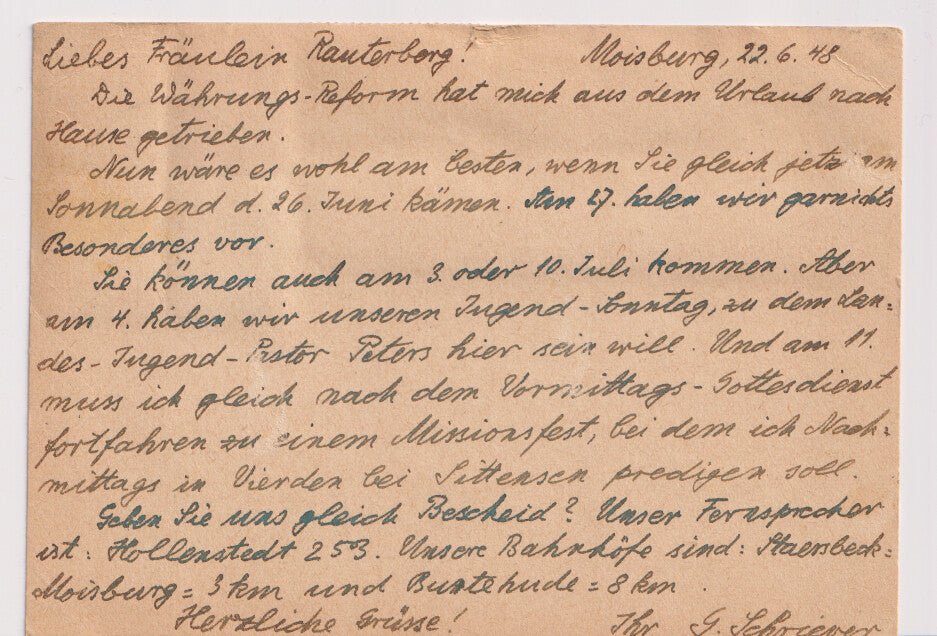 Liebes Fräulein Rauterberg! Moisburg, 22.6.48
Die Währungs-Reform hat mich aus dem Urlaub nach
Hause getrieben.
Nun wäre es wohl am besten, wenn Sie gleich jetzt am
Sonnabend d. 26. Juni kämen. Am 27. haben wir garnichts
Besonderes vor.
Sie können auch am 3. oder 10. Juli kommen. Aber
am 4. haben wir unseren Jugend-Sonntag, zu dem Lan=
des-Jugend-Pastor Peters hier sein will. Und am 11.
muss ich gleich nach dem Vormittags-Gottesdienst
fortfahren zu einem Missionsfest, bei dem ich Nach=
mittags in Vierden bei Sittensen predigen soll.
Geben Sie uns gleich Bescheid? Unser Fernsprecher
ist: Hollenstedt 253. Unsere Bahnhöfe sind: Staersbeck=
Moisburg = 3 km und Buxtehude = 8 km.
Herzliche Grüsse! Ihr G. Schriever